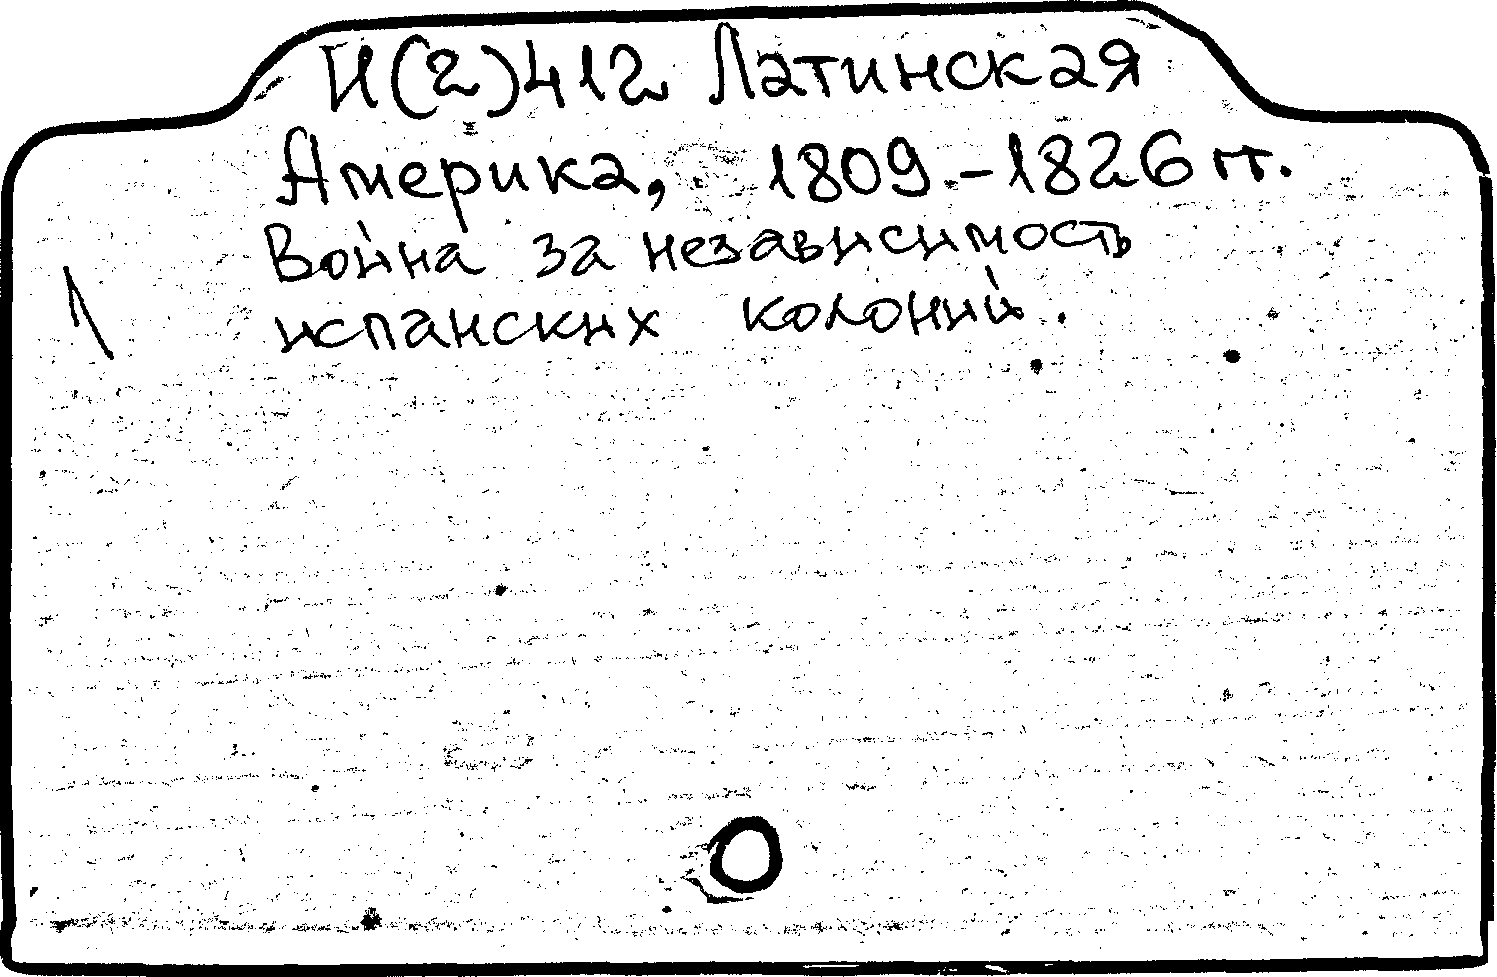 И(2)412 Латинская
Америка, 1809.-1826 гг.
Война за независимость
испанских колоний.